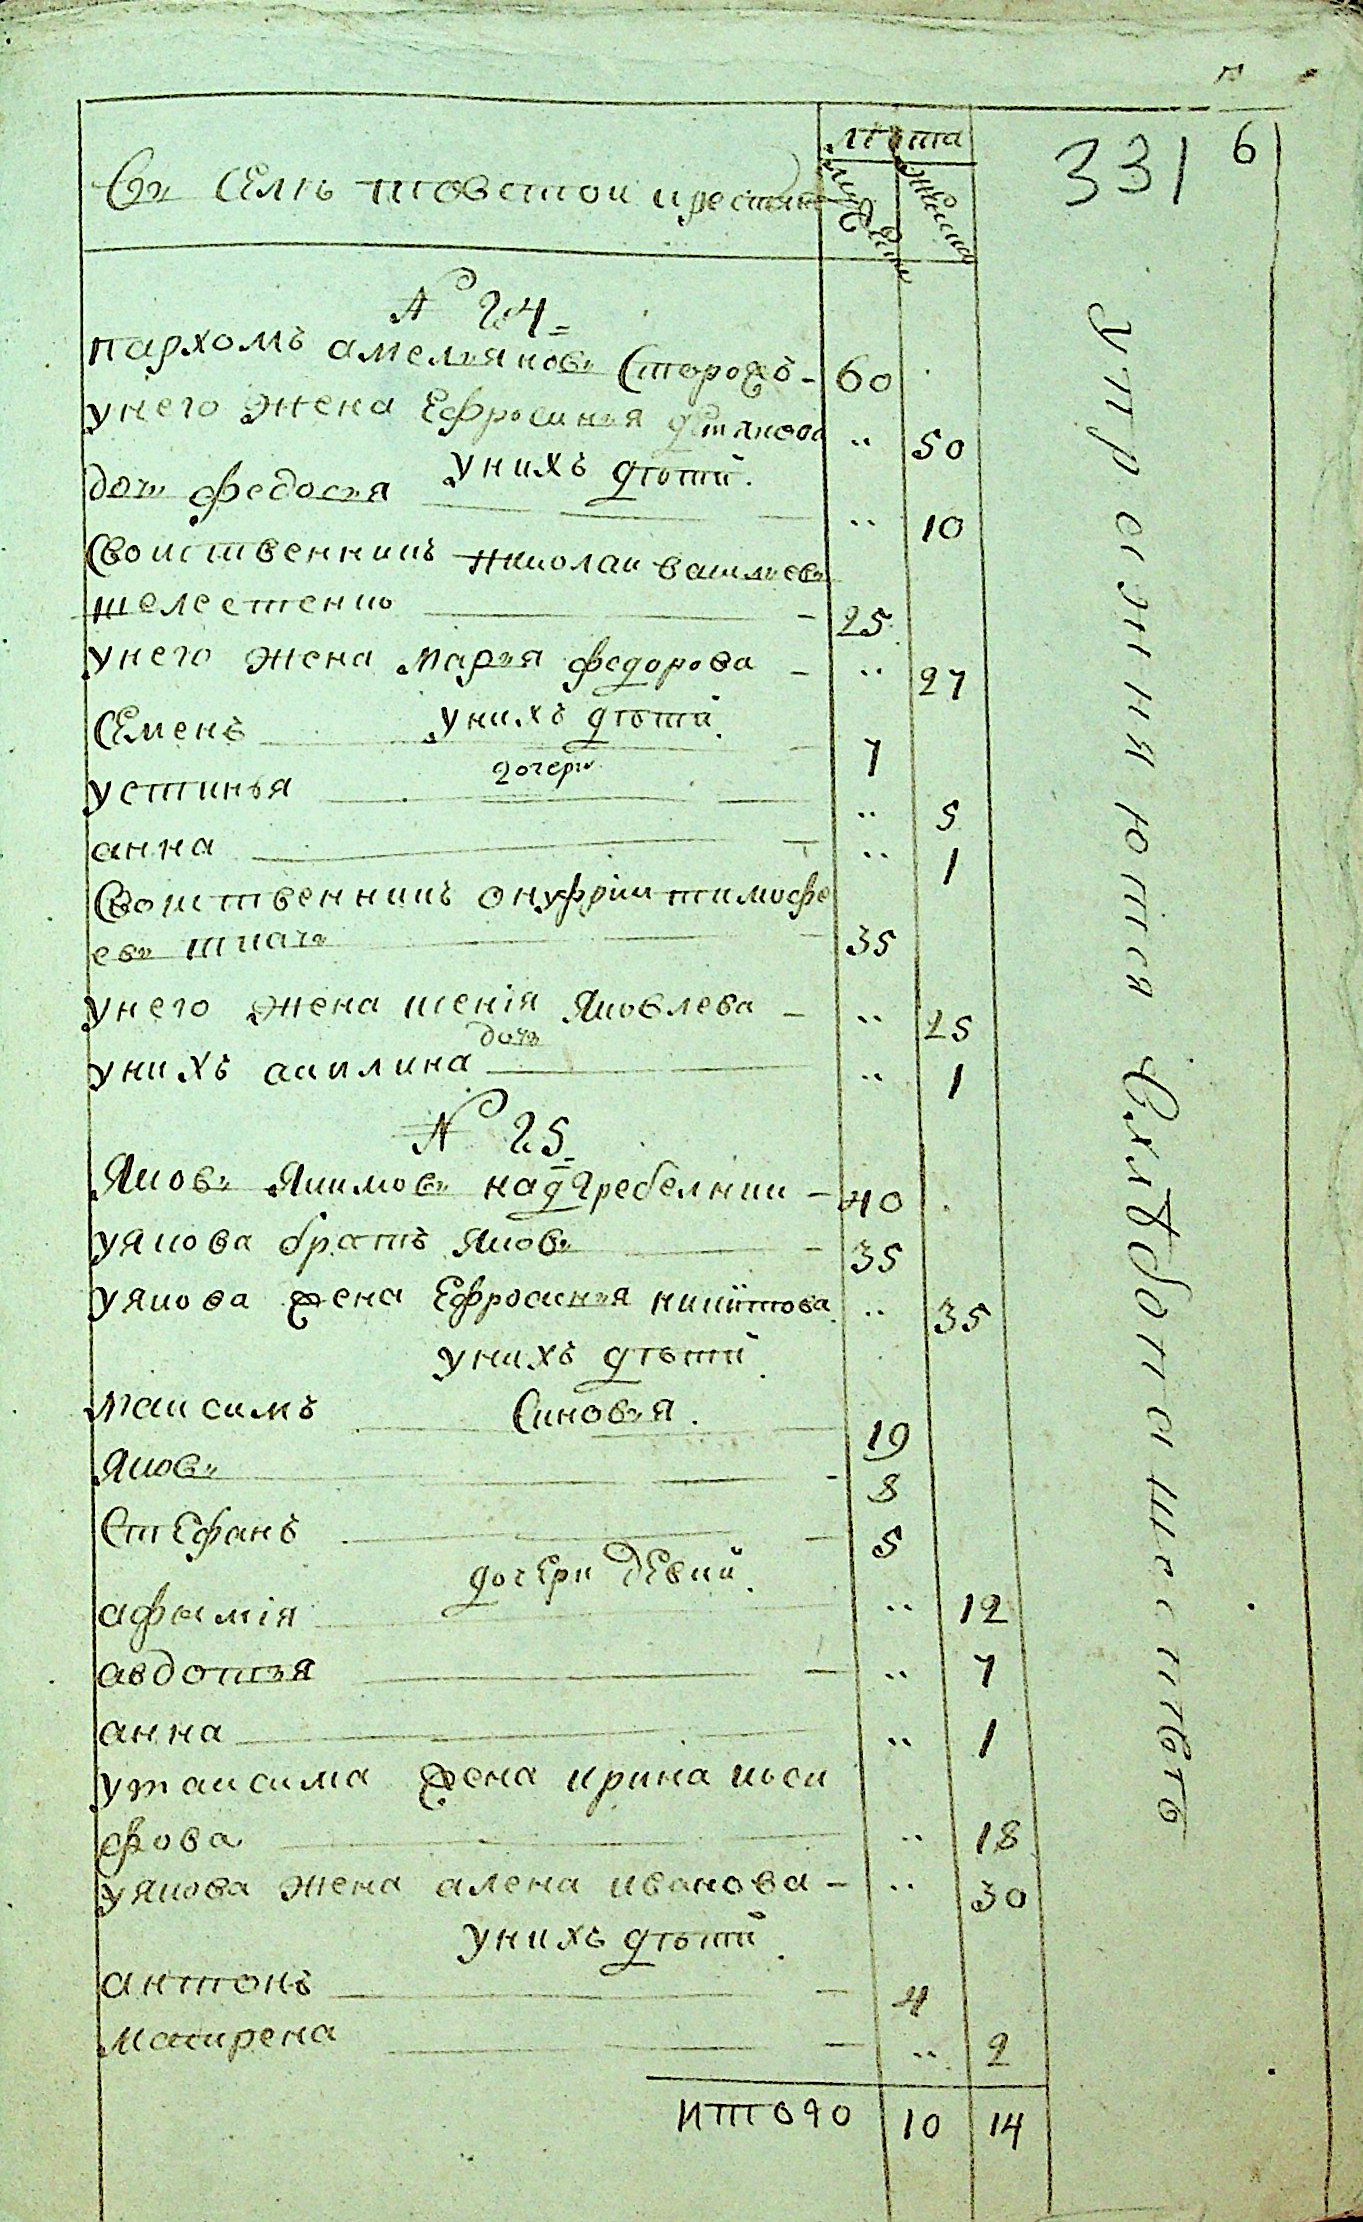 331 6
лѣта
Въ Селѣ товстои крестяне
мужески
женска
N 24
пархомъ амельяновъ Сторожъ - 60
унего жена Ефросинья демянова " 50
унихъ дѣтей
дочь федосья " 10
Своиственникъ николаи васильевъ
шелестенко - 25
унего жена марья федорова - " 27
унихъ дѣтей
Семенъ - 7
дочери
устинья " 5
анна - " 1
Своиственникъ онуфріи тимофе
евъ ткачъ - 35
унего жена ксенія Яковлева - " 25
дочь
унихъ акилина " 1
N 25
Яковъ Якимовъ надгребелнии - 40
уякова братъ Яковъ - 35
уякова жена Ефросинья никитова " 35
унихъ дѣтей
Синовья
максимъ - 19
Яковъ - 8
Стефанъ - 5
дочери девки
афымія " 12
авдотья - " 7
анна " 1
умаксима жена ирина иоси
фова " 18
уякова жена алена иванова - " 30
унихъ дѣтей
антонъ - 4
макирена - " 2
итого 10 14
упражняются вхлѣбопашествѣ